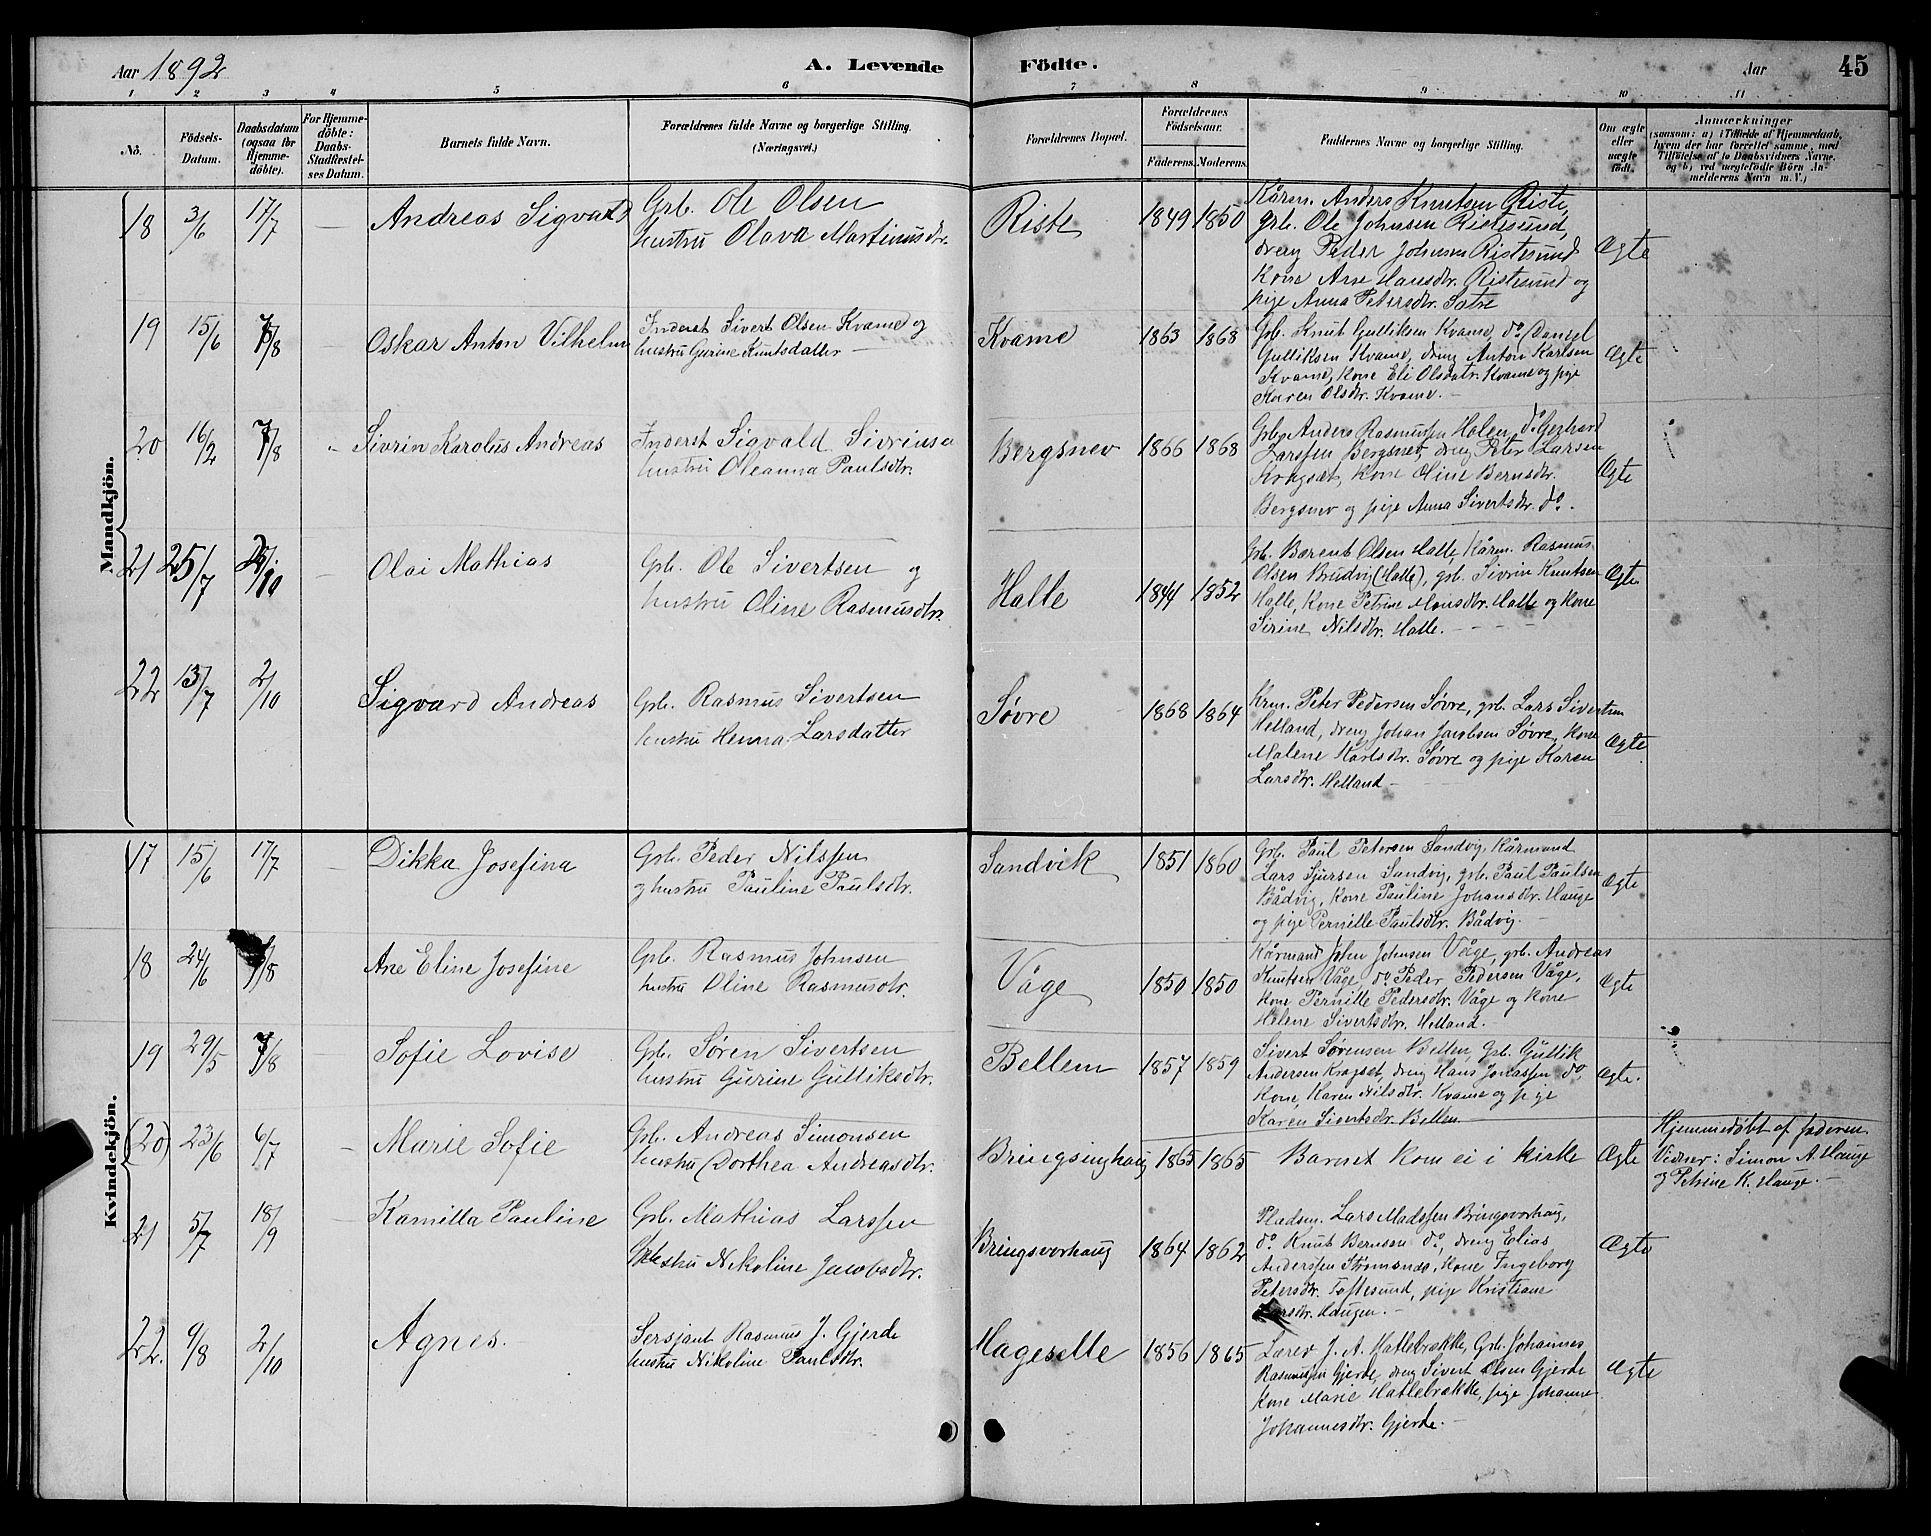 Aar 1892
A. Levende Födte.
Aar
45
1 2 3 4 5 6 7 8 9 10 11
No.
Födsels-Datum.
Daabsdatum (ogsaa for Hjemme-döbte).
For Hjemme-döbte: Daabs-Stadfæstel-ses Datum.
Barnets fulde Navn.
Forældrenes fulde Navne og borgerlige Stilling. (Næringsvei.)
Forældrenes Bopæl.
Forældrenes Födselsaar.
Faderens. Moderens.
Faddernes Navne og borgerlige Stilling.
Om ægte eller uægte födt.
Anmærkninger
(saasom: a) i Tilfælde af Hjemmedaab, hvem der har forrettet samme, med Tilföielse af to Daabsvidners Navne, og b) ved uægtefödte Börn An-melderens Navn m. V.)
Mandkjön.
18 3/6 17/7 — Andreas Sigvald
Grb. Ole Olsen
hustru Olava Martinusdtr.
Riste 1849 1850
Kårm. Anders Knutsen Riste,
grb. Ole Johnsen Ristesund,
dreng Peder Johnsen Ristesund
Kone Ane Hansdtr. Ristesund og
pige Anna Petersdtr. Sætre
Ægte
19 15/6 7/8 — Oskar Anton Vilhelm
Inderst Sivert Olsen Kvame og
hustru Gurine Knutsdatter —
Kvame 1863 1868
Grb. Knut Gulliksen Kvame, do Daniel
Gulliksen Kvame, dreng Anton Karlsen
Kvame, Kone Eli Olsdatr. Kvame og pige
Karen Olsdtr. Kvame. —
Ægte
20 16/2 7/8 - Sivrin Karolus Andreas
Inderst Sigvald Sivrinsen
hustru Oleanna Paulsdtr.
Bergsnev 1866 1868
Grb. Anders Rasmussen Holen, do Gerhard
Larssen Bergsnev, dreng Peter Larsen
Kragset, Kone Oline Berns­dtr.
Bergsnev og pige Anna Sivertsdtr. do.
Ægte
21 25/7 2/10 — Olai Mathias
Grb. Ole Sivertsen og
hustru Oline Rasmusdtr.
Halle 1844 1852
Grb. Berent Olsen Halle, Kårm. Rasmus
Olsen Brudvig (Halle), grb. Sivrin Knutsen
Halle, Kone Petrine Monsdtr. Halle og Kone
Sirine Nilsdtr. Halle. — — —
Ægte
22 13/7 2/10 Sigvard Andreas
Grb. Rasmus Sivertsen
hustru Henna Larsdatter
Søvre 1868 1864
Krm. Peter Pedersen Søvre, grb. Lars Sivertsen
Helland, dreng Johan Jacobsen Søvre, Kone
Malene Karlsdtr. Søvre og pige Karen
Larsdtr. Helland —
Ægte
Kvindekjön.
17 15/6 17/7 — Dikka Josefina
Grb. Peder Nilssen
og hustru Pauline Paulsdtr.
Sandvik 1851 1860
Grb. Paul Petersen Sandvig, Kårmand
Lars Sjursen Sandvig, grb. Paul Paulsen
Bådvig, Kone Pauline Johansdtr. Hauge
og pige Pernille Paulsdtr. Bådvig. —
Ægte
18 24/6 7/8 Ane Eline Josefine
Grb. Rasmus Johnsen
hustru Oline Rasmusdtr.
Våge 1850 1850
Kårmand John Johnsen Våge, grb. Andreas
Knutsen Våge, do Peder Pedersen Våge,
Kone Pernille Pedersdtr. Våge og Kone
Helene Sivertsdtr. Helland.
Ægte
19 29/5 7/8 — Sofie Lovise
Grb. Søren Sivertsen
hustru Gurine Gulliksdtr.
Bellem 1857 1859
Sivert Sørensen Bellen, Grb. Gullik
Andersen Kragset, dreng Hans Jonassen do,
Kone Karen Nilsdtr. Kvame og pige
Karen Sivertsdtr. Bellen.
Ægte.
(20) 23/6 6/7 — Marie Sofie
Grb. Andreas Simonsen
hustru Dorthea Andreasdtr.
Bringsinghaug 1865 1865
Barnet kom ei i kirke
Ægte
Hjemmedøbt af faderen.
Vidner: Simon A. Hauge
og Petrine K. Hauge. —
21 5/7 18/9 — Kamilla Pauline
Grb. Mathias Larssen
hustru Nikoline Jacobsdtr.
Bringsvorhaug 1864 1862
Pladsm. Lars Madssen Bringsvorhaug,
do Knut Bernsen do, dreng Elias
Anderssen Strømsnes, Kone Ingeborg
Petersdtr. Toftesund, pige Kristiane
Larsdtr. Haugen. —
Ægte
22. 9/8 2/10 Agnes.
Sersjant Rasmus J. Gjerde
hustru Nikoline Paulsdtr.
Mageselle 1856 1865
Lærer J. A. Hatlebrække, Grb. Johannes
Rasmussen Gjerde, dreng Sivert Olsen Gjerde
Kone Marie Hatlebrække, pige Johanne
Johannesdtr. Gjerde. —
Ægte